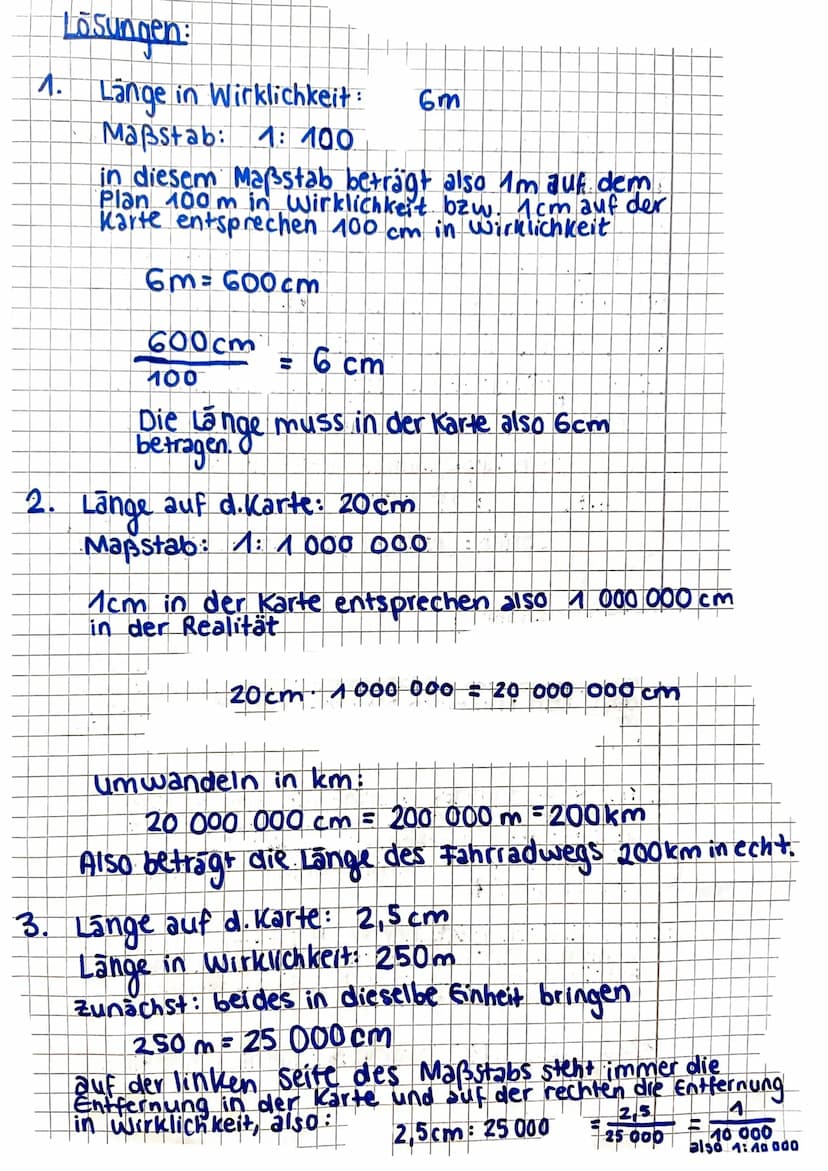 Lösungen:
1. Länge in Wirklichkeit: 6m
Maßstab: 1: 100
in diesem Maßstab beträgt also 1m auf dem
Plan 100 m in Wirklichkeit bzw. 1cm auf der
Karte entsprechen 100 cm in Wirklichkeit
6m = 600cm
600cm
100
= 6 cm
Die Länge muss in der Karte also 6cm
betragen.
2. Länge auf d. Karte: 20cm
Maßstab: 1: 1 000 000
1cm in der Karte entsprechen also 1 000 000 cm
in der Realität
20cm · 1 000 000 = 20 000 000 cm
umwandeln in km:
20 000 000 cm = 200 000 m = 200km
Also beträgt die Länge des Fahrradwegs 200km in echt.
3. Länge auf d. Karte: 2,5cm
Länge in Wirklichkeit: 250m
Zunächst: beides in dieselbe Einheit bringen
250 m = 25 000cm
auf der linken Seite des Maßstabs steht immer die
Entfernung in der Karte und auf der rechten die Entfernung
in Wirklichkeit, also: 2,5cm : 25 000 = 2,5/25 000 = 1/10 000
also 1:10 000